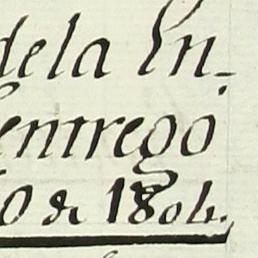 dela En-
entrego
0 de 1804.